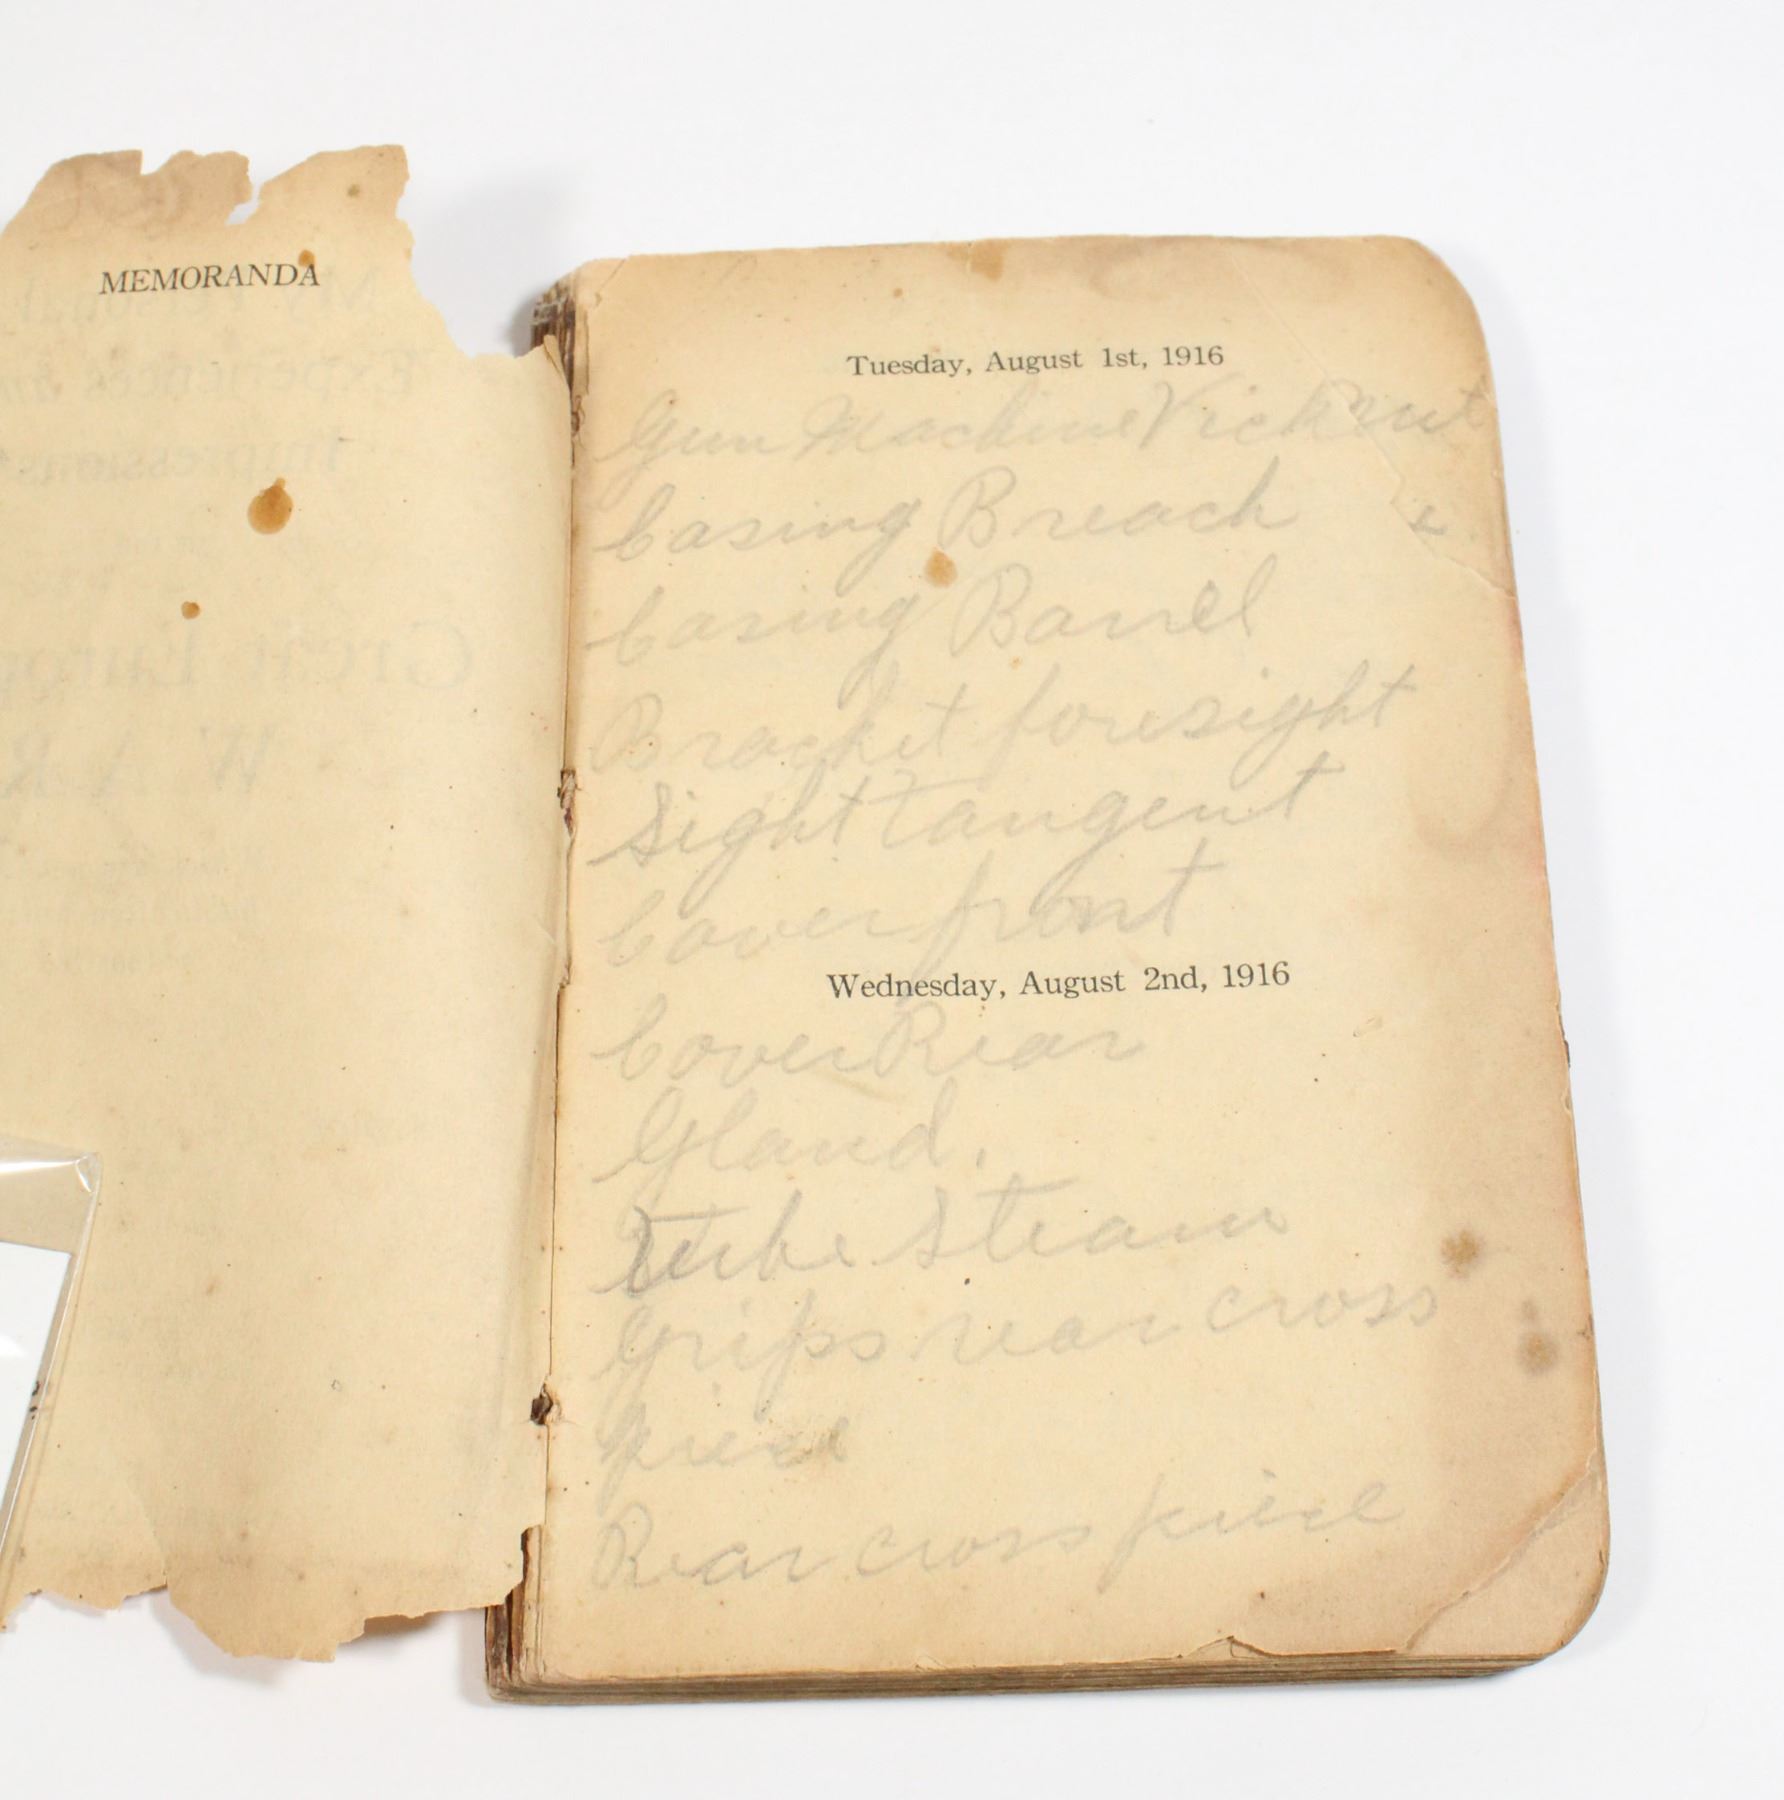 MEMORANDA
Tuesday, August 1st, 1916
Gun Machine
Casing Breach
Casing Barrel
Bracket foresight
Sight tangent
Cover front
Wednesday, August 2nd, 1916
Cover Rear
Gland.
Tube Steam
Grips rear cross
piece
Rear cross piece